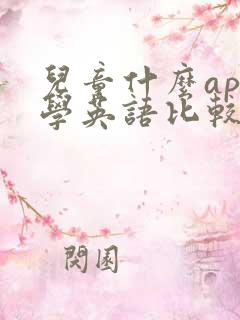 兒童什麼ap
學英語比較
閱園